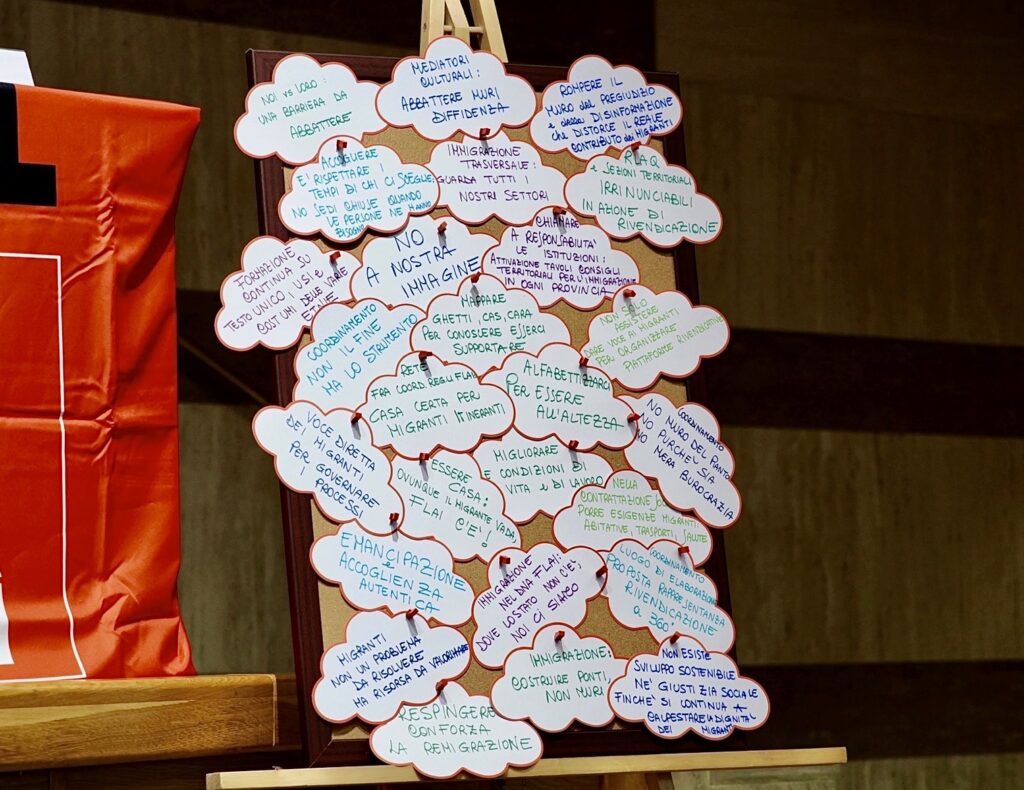 NOI vs LORO:
UNA BARRIERA DA
ABBATTERE
MEDIATORI
CULTURALI:
ABBATTERE MURI
DIFFIDENZA
ROMPERE IL
MURO del PREGIUDIZIO
e della DISINFORMAZIONE
che DISTORCE IL REALE
CONTRIBUTO dei MIGRANTI
ACCOGLIERE
E' RISPETTARE I
TEMPI DI CHI CI SCEGLIE,
NO SEDI CHIUSE QUANDO
LE PERSONE NE HANNO
BISOGNO
IMMIGRAZIONE
TRASVERSALE:
GUARDA TUTTI I
NOSTRI SETTORI
RLAQ
e SEZIONI TERRITORIALI
IRRINUNCIABILI
IN AZIONE DI
RIVENDICAZIONE
FORMAZIONE
CONTINUA SU
TESTO UNICO, USI e
COSTUMI DELLE VARIE
ETNIE
NO
A NOSTRA
IMMAGINE
CHIAMARE
A RESPONSABILITA'
LE ISTITUZIONI:
ATTIVAZIONE TAVOLI CONSIGLI
TERRITORIALI PER L'IMMIGRAZIONE
IN OGNI PROVINCIA
COORDINAMENTO
NON IL FINE
MA LO STRUMENTO
MAPPARE
GHETTI, CAS, CARA
PER CONOSCERE ESSERCI
SUPPORTARE
NON SOLO
ASSISTERE
DARE VOCE AI MIGRANTI
PER ORGANIZZARE
PIATTAFORME RIVENDICATIVE
RETE
FRA COORD. REG.LI FLAI
CASA CERTA PER
MIGRANTI ITINERANTI
ALFABETTIZZARCI
PER ESSERE
ALL'ALTEZZA
COORDINAMENTO
NO MURO DEL PIANTO
NO PURCHE' SIA
NO MERA BUROCRAZIA
VOCE DIRETTA
DEI MIGRANTI
PER GOVERNARE
I PROCESSI
ESSERE
CASA:
OVUNQUE IL MIGRANTE VADA,
FLAI C'E'!
MIGLIORARE
e CONDIZIONI DI
VITA e DI LAVORO
NELLA
CONTRATTAZIONE
PORRE ESIGENZE MIGRANTI:
ABITATIVE, TRASPORTI, SALUTE
EMANCIPAZIONE
e
ACCOGLIENZA
AUTENTICA
IMMIGRAZIONE
NEL DNA FLAI:
DOVE LO STATO NON C'E',
NOI CI SIAMO
COORDINAMENTO
LUOGO DI ELABORAZIONE
PROPOSTA RAPPRESENTANZA
RIVENDICAZIONE
a 360°
MIGRANTI
NON UN PROBLEMA
DA RISOLVERE
MA RISORSA DA VALORIZZARE
IMMIGRAZIONE:
COSTRUIRE PONTI,
NON MURI
NON ESISTE
SVILUPPO SOSTENIBILE
NE' GIUSTIZIA SOCIALE
FINCHE' SI CONTINUA A
CALPESTARE LA DIGNITA'
DEI MIGRANTI
RESPINGERE
CON FORZA
LA REMIGRAZIONE